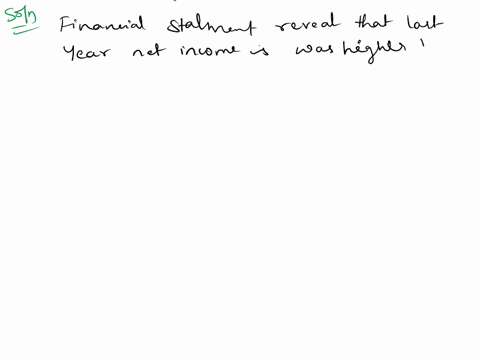 Soln Financial Stalment reveal that last
Year net income is was higher